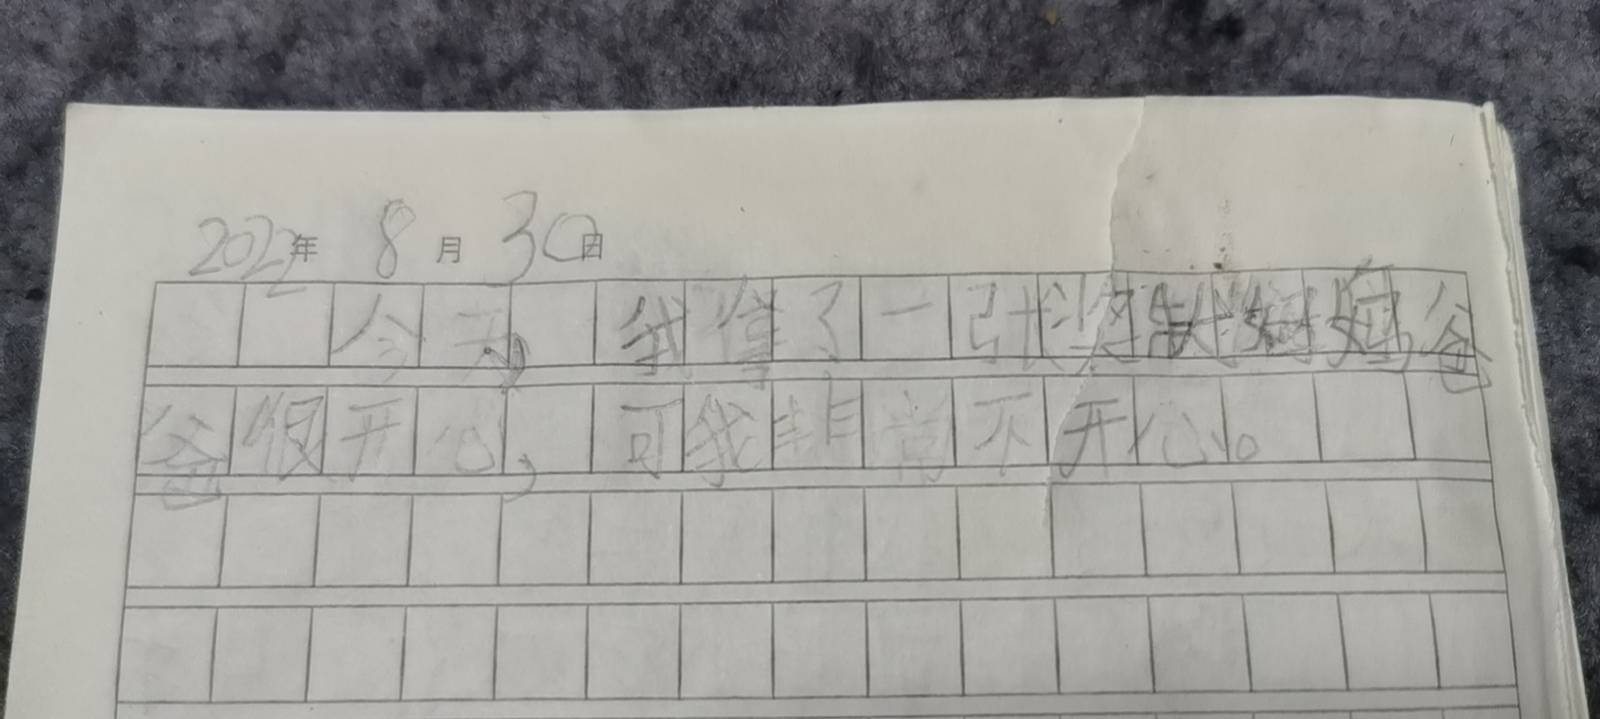 2022年 8月 30日
今天,我拿了一张奖状妈妈爸
爸很开心,可我非常不开心。